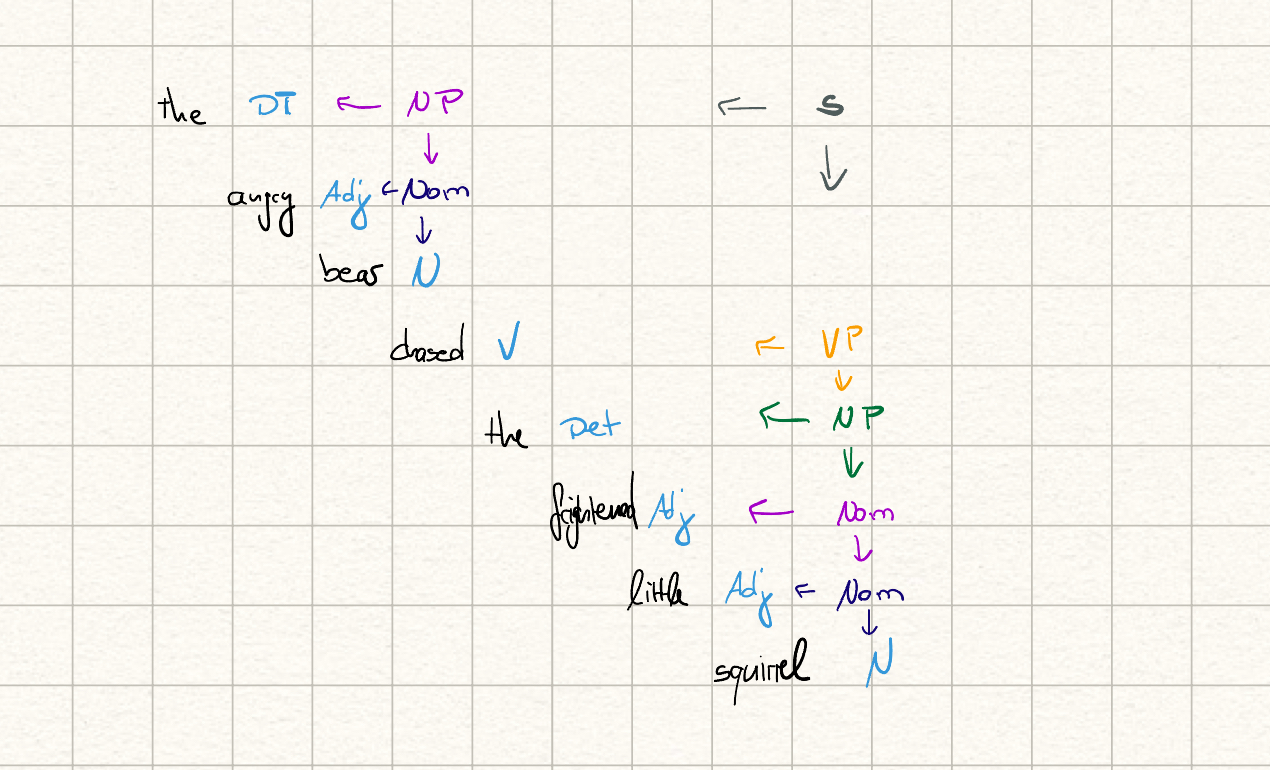 the DT ← NP ← S
↓ ↓
angry Adj ← Nom
↓
bear N
chased V ← VP
↓
the Det ← NP
↓
frightened Adj ← Nom
↓
little Adj ← Nom
↓
squirrel N